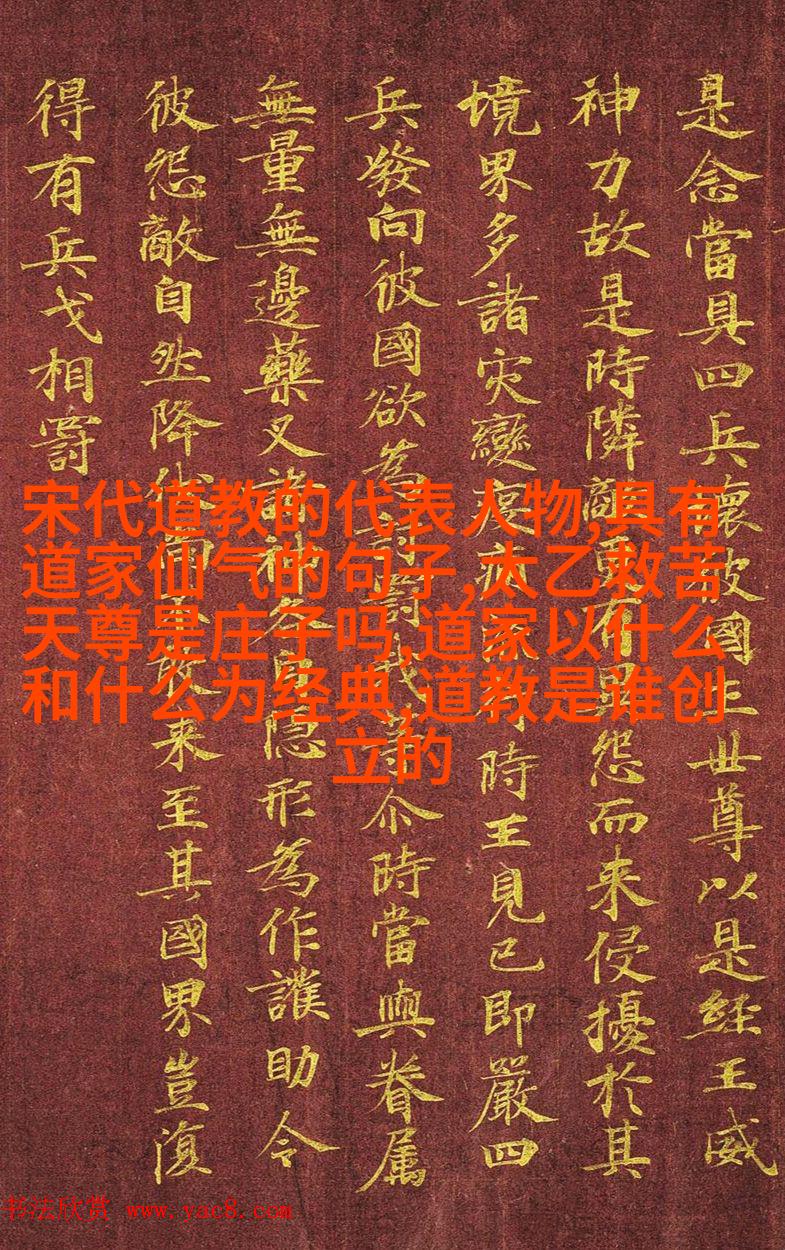 是念當具四兵壞彼國土世尊以是經王威
神力故是時隣敵更有異怨而来侵擾於其
境界多諸灾變疫病時王見已即嚴四
兵發向彼國欲為討罰我等尒時當與眷属
無量無邊藥叉諸神各自隱形為作護助令
彼怨敵自然降伏尚不敢来至其國界豈復
得有兵戈相罸
宋代道教的代表人物,具有
道家仙气的句子,太乙救苦
天尊是庄子吗,道家以什么
和什么为经典,道教是谁创
立的
书法欣赏 www.yac8.com